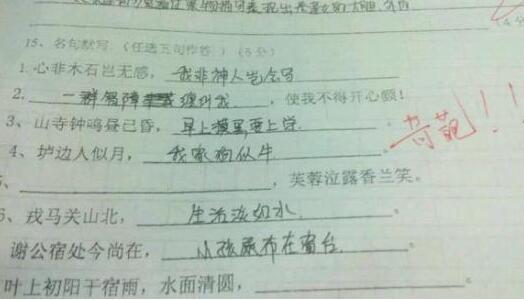 15、名句默写 (任选五句作答) (5分)
1.心非木石岂无感，我非神人岂会写
2.一群智障来缠纠我，使我不得开心颜！
3、山寺钟鸣昼已昏，早上摸黑要上学.
4、垆边人似月，我家狗似牛。
、，芙蓉泣露香兰笑。
6、戎马关山北，生活淡如水。
谢公宿处今尚在，小孩尿布在窗台。
叶上初阳干宿雨，水面清圆，。
！！